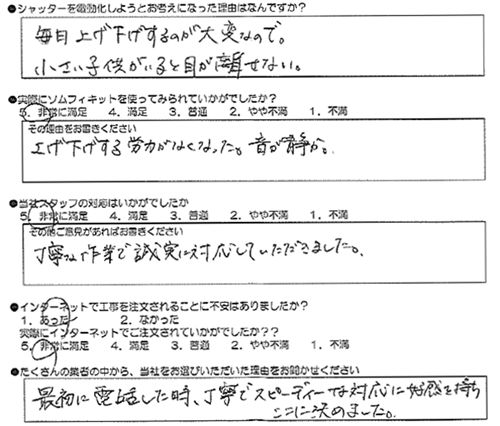 ●シャッターを電動化しようとお考えになった理由はなんですか?
毎日上げ下げするのが大変なので。
小さい子供がいると目が離せない。
●実際にソムフィキットを使ってみられていかがでしたか?
5. 非常に満足 4. 満足 3. 普通 2. やや不満 1. 不満
その理由をお書きください
上げ下げする労力がなくなった。音が静か。
●当社スタッフの対応はいかがでしたか
5. 非常に満足 4. 満足 3. 普通 2. やや不満 1. 不満
その他ご意見があればお書きください
丁寧な作業で誠実に対応していただきました。
●インターネットで工事を注文されることに不安はありましたか?
1. あった 2. なかった
実際にインターネットでご注文されていかがでしたか??
5. 非常に満足 4. 満足 3. 普通 2. やや不満 1. 不満
●たくさんの業者の中から、当社をお選びいただいた理由をお聞かせください
最初に電話した時、丁寧でスピーディーな対応に好感を持ち
ここに決めました。